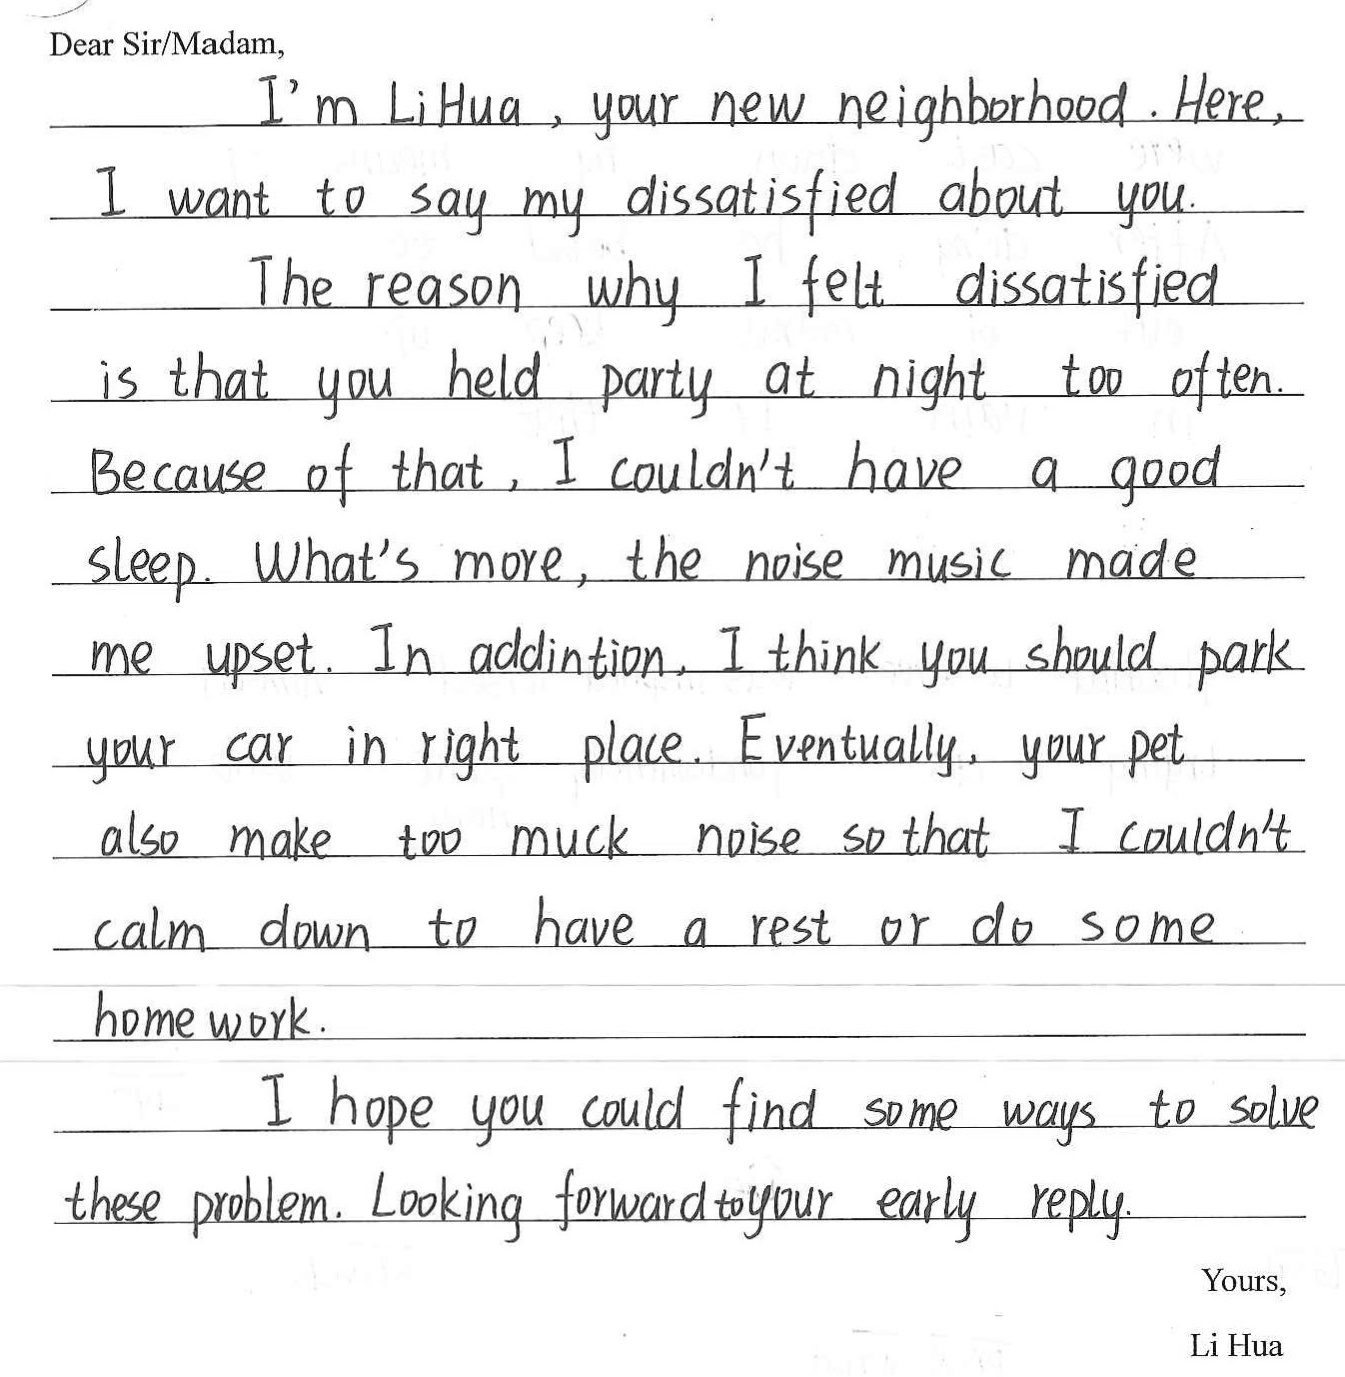 Dear Sir/Madam,
I'm Li Hua, your new neighborhood. Here,
I want to say my dissatisfied about you.
The reason why I felt dissatisfied
is that you held party at night too often.
Because of that, I couldn't have a good
sleep. What's more, the noise music made
me upset. In addintion, I think you should park
your car in right place. Eventually, your pet
also make too muck noise so that I couldn't
calm down to have a rest or do some
home work.
I hope you could find some ways to solve
these problem. Looking forward to your early reply.
Yours,
Li Hua